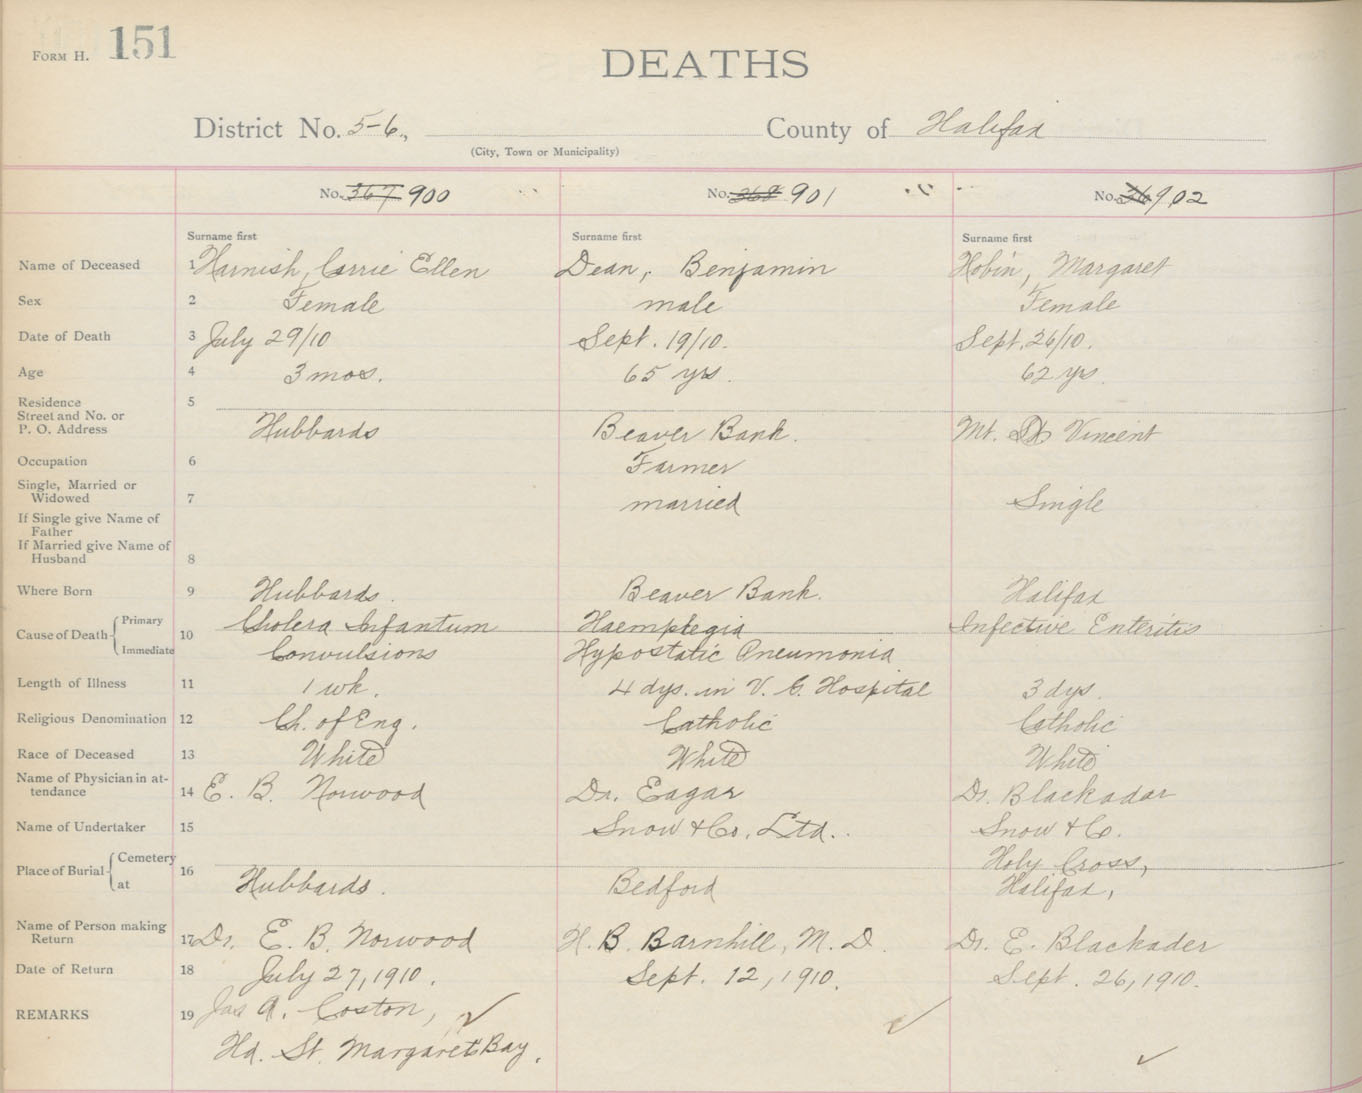 FORM H. 151
DEATHS
District No. 5-6., County of Halifax
(City, Town or Municipality)
No. 367 900 No. 368 901 No. 36 902
Surname first Surname first Surname first
Name of Deceased 1 Harnish, Carrie Ellen Dean, Benjamin Hobin, Margaret
Sex 2 Female male Female
Date of Death 3 July 29/10 Sept. 19/10. Sept. 26/10.
Age 4 3 mos. 65 yrs. 62 yrs.
Residence 5
Street and No. or
P. O. Address Hubbards Beaver Bank. Mt. St Vincent
Occupation 6 Farmer
Single, Married or
Widowed 7 married Single
If Single give Name of
Father
If Married give Name of
Husband 8
Where Born 9 Hubbards. Beaver Bank. Halifax
Cause of Death 10 Primary Cholera Infantum Haemplegia Infective Enteritis
Immediate Convulsions Hypostatic Pneumonia
Length of Illness 11 1 wk. 4 dys. in V. G. Hospital 3 dys.
Religious Denomination 12 Ch. of Eng. Catholic Catholic
Race of Deceased 13 White White White
Name of Physician in at-
tendance 14 E. B. Norwood Dr. Eagar Dr. Blackadar
Name of Undertaker 15 Snow & Co. Ltd.. Snow & Co.
Place of Burial 16 Cemetery Holy Cross,
at Hubbards. Bedford Halifax,
Name of Person making
Return 17 Dr. E. B. Norwood H. B. Barnhill, M. D. Dr. E. Blackader
Date of Return 18 July 27, 1910. Sept. 12, 1910. Sept. 26, 1910.
REMARKS 19 Jas A. Coston,
Hd. St. Margaret's Bay.